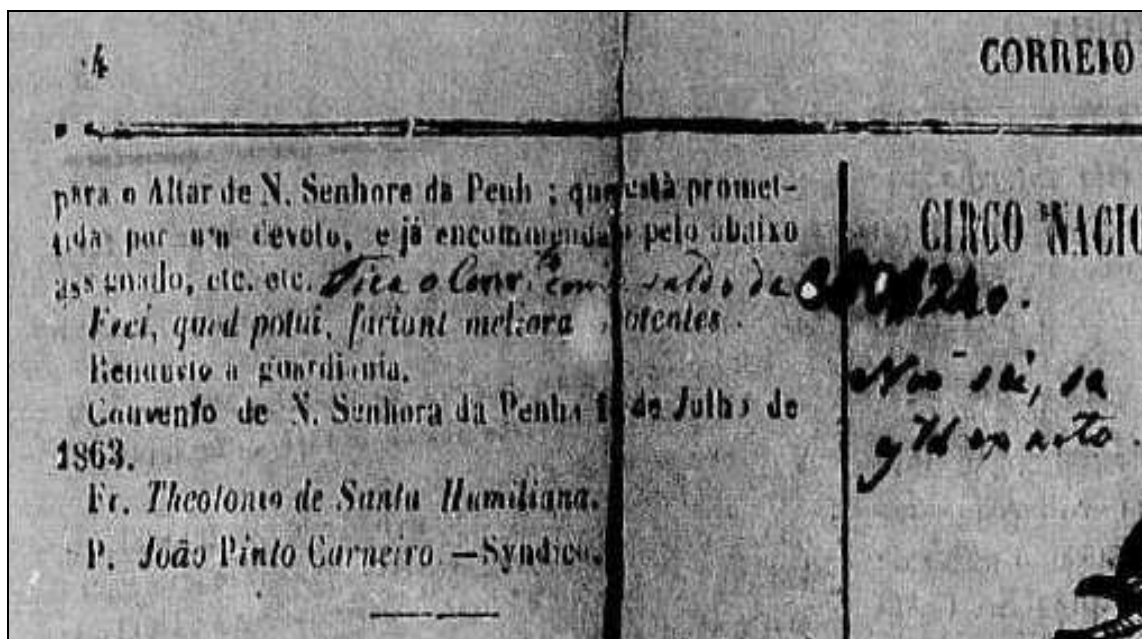 4
CORREIO
para o Altar de N. Senhora da Penh ; que está promet-
tida por um devoto, e já encommendada pelo abaixo
assignado, etc. etc. Fica o Conv.to com o saldo de
Feci, quod potui, faciant meliora potentes.
Renuncio a guardiania.
Convento de N. Senhora da Penha de Julho de
1863.
Fr. Theotonio de Santa Humiliana.
P. João Pinto Carneiro.—Syndico.
CIRCO NACIO
Não sei, se
exacto.